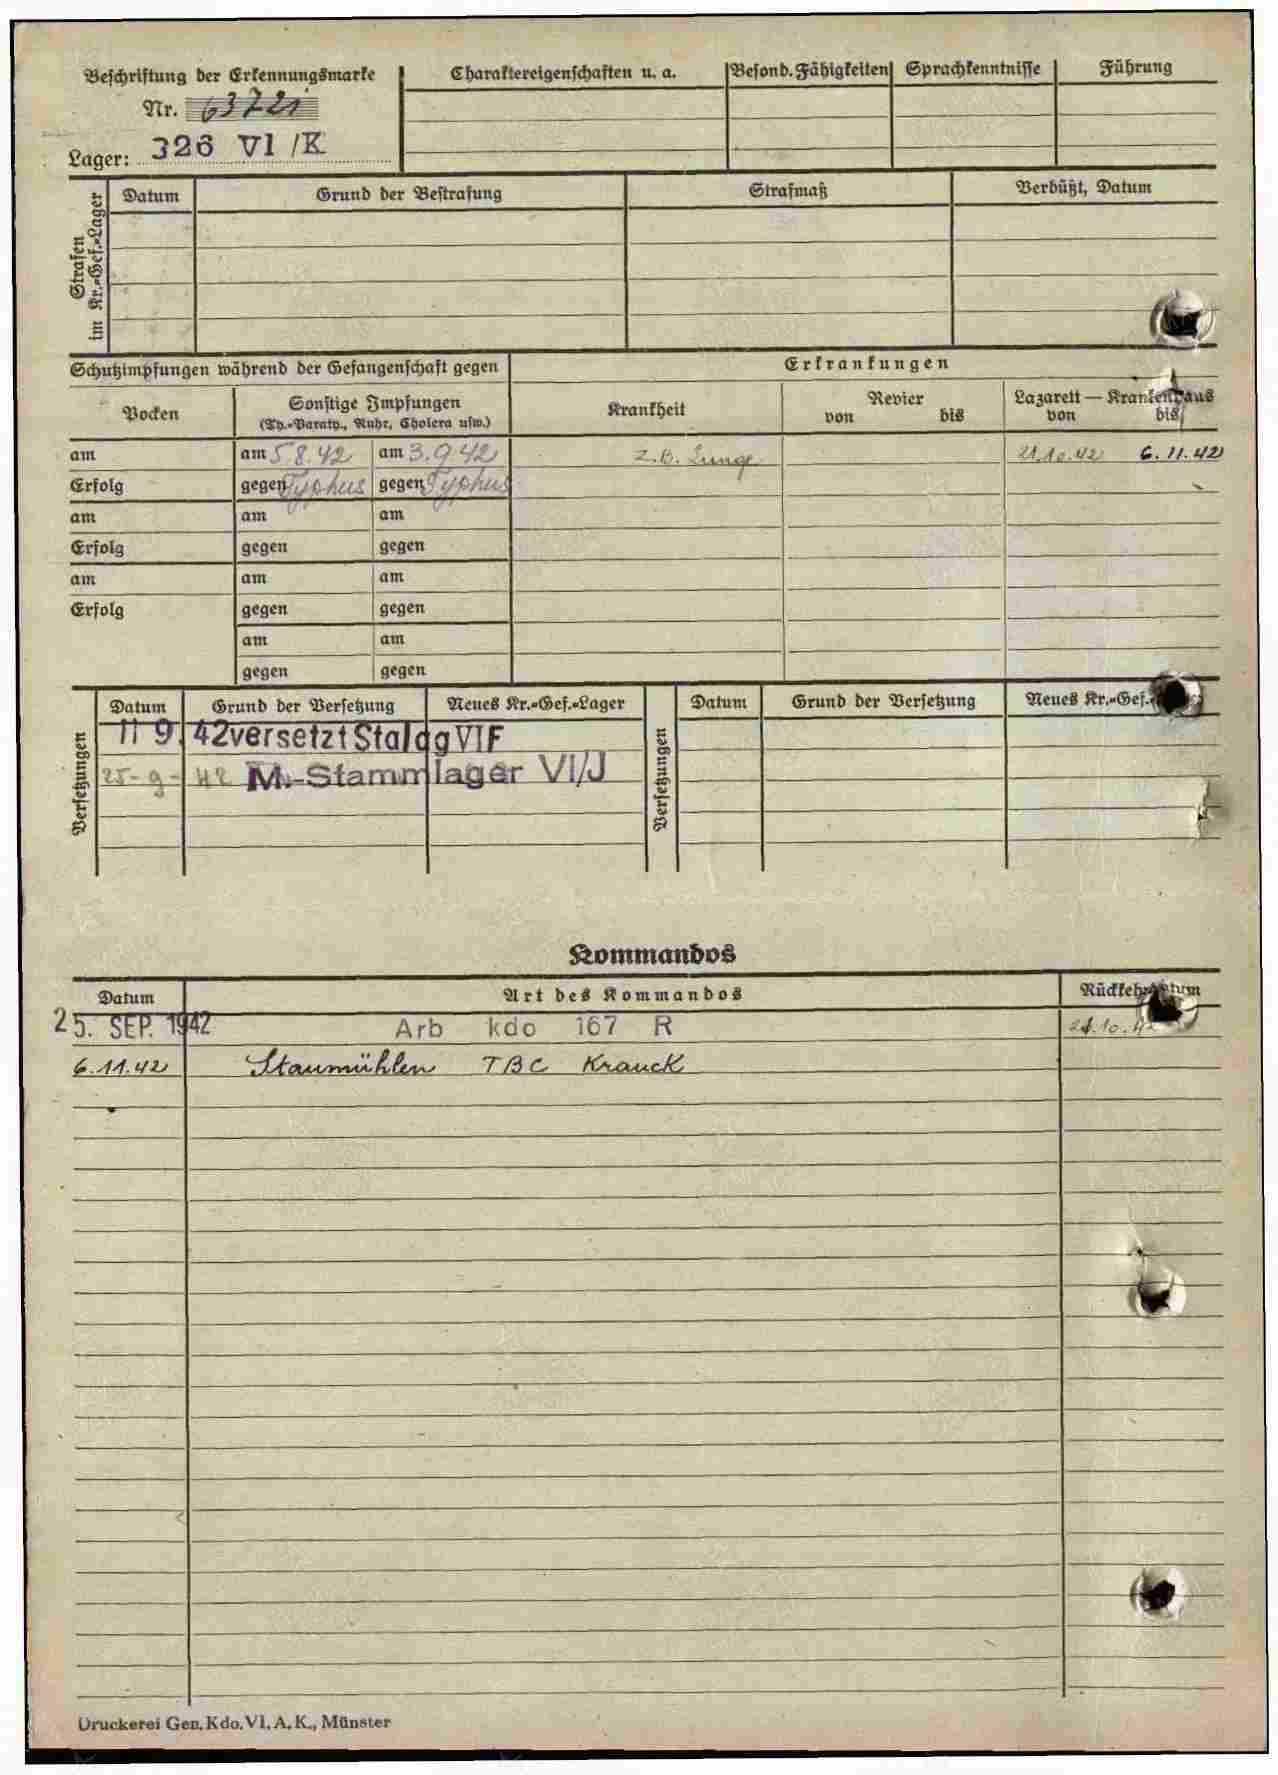 Beschriftung der Erkennungsmarke
Nr. 63721
Lager: 326 VI /K
Charaktereigenschaften u. a.
Besond. Fähigkeiten
Sprachkenntnisse
Führung
Strafen
im Kr.-Gef.-Lager
Datum
Grund der Bestrafung
Strafmaß
Verbüßt, Datum
Schutzimpfungen während der Gefangenschaft gegen
Erkrankungen
Pocken
Sonstige Impfungen
(Ty.-Paraty., Ruhr, Cholera usw.)
Krankheit
Revier
von bis
Lazarett — Krankenhaus
von bis
am am 5.8.42 am 3.9.42 z.B. Lunge 21.10.42 6.11.42
Erfolg gegen Typhus gegen Typhus
am am am
Erfolg gegen gegen
am am am
Erfolg gegen gegen
am am
gegen gegen
Versetzungen
Datum Grund der Versetzung Neues Kr.-Gef.-Lager
11 9. 42 versetzt Stalag VI F
25-9-42 M.-Stammlager VI/J
Versetzungen
Datum Grund der Versetzung Neues Kr.-Gef.-
Kommandos
Datum Art des Kommandos Rückkehr Datum
25. SEP. 1942 Arb kdo 167 R 21.10.42
6.11.42 Staumühlen TBC Kranck
Druckerei Gen. Kdo. VI. A. K., Münster